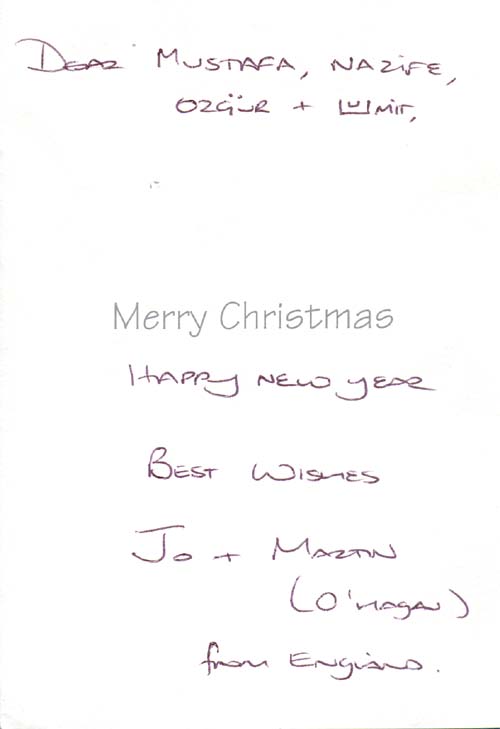 Dear Mustafa, Nazife,
Özgür + Ümit,
Merry Christmas
Happy New Year
Best Wishes
Jo + Martin
(O'Hagan)
from England.